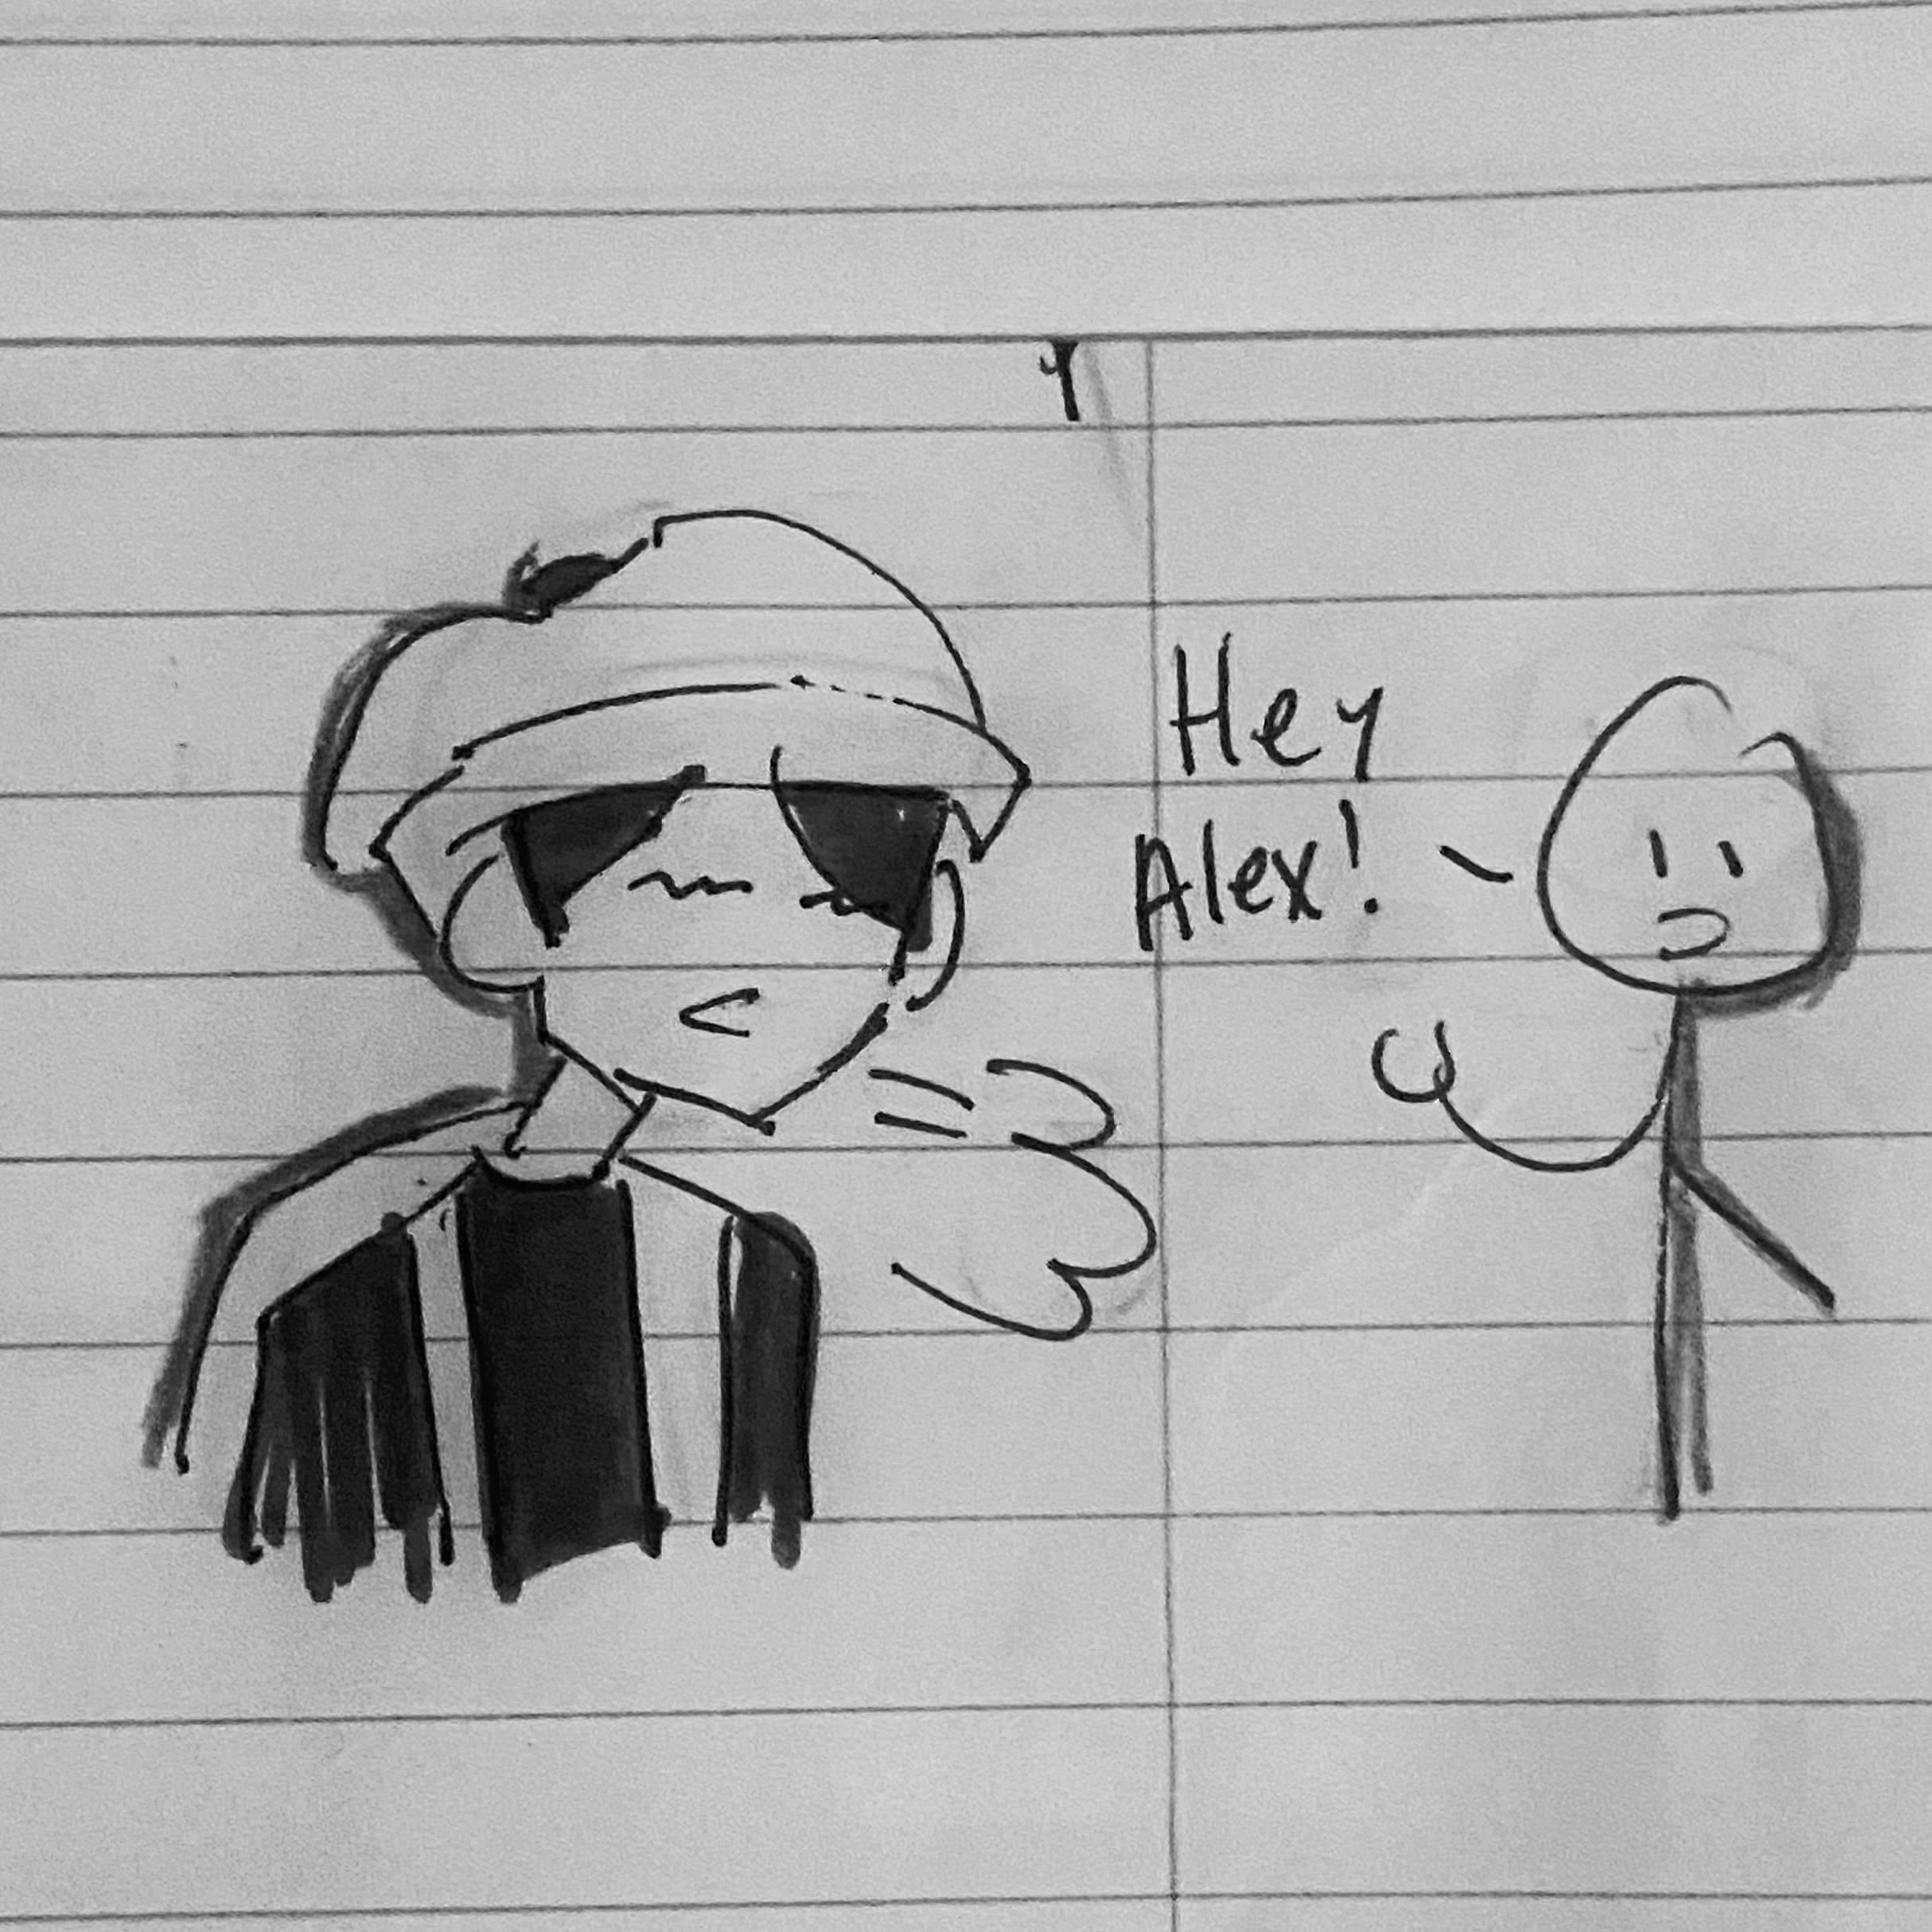 Hey
Alex!